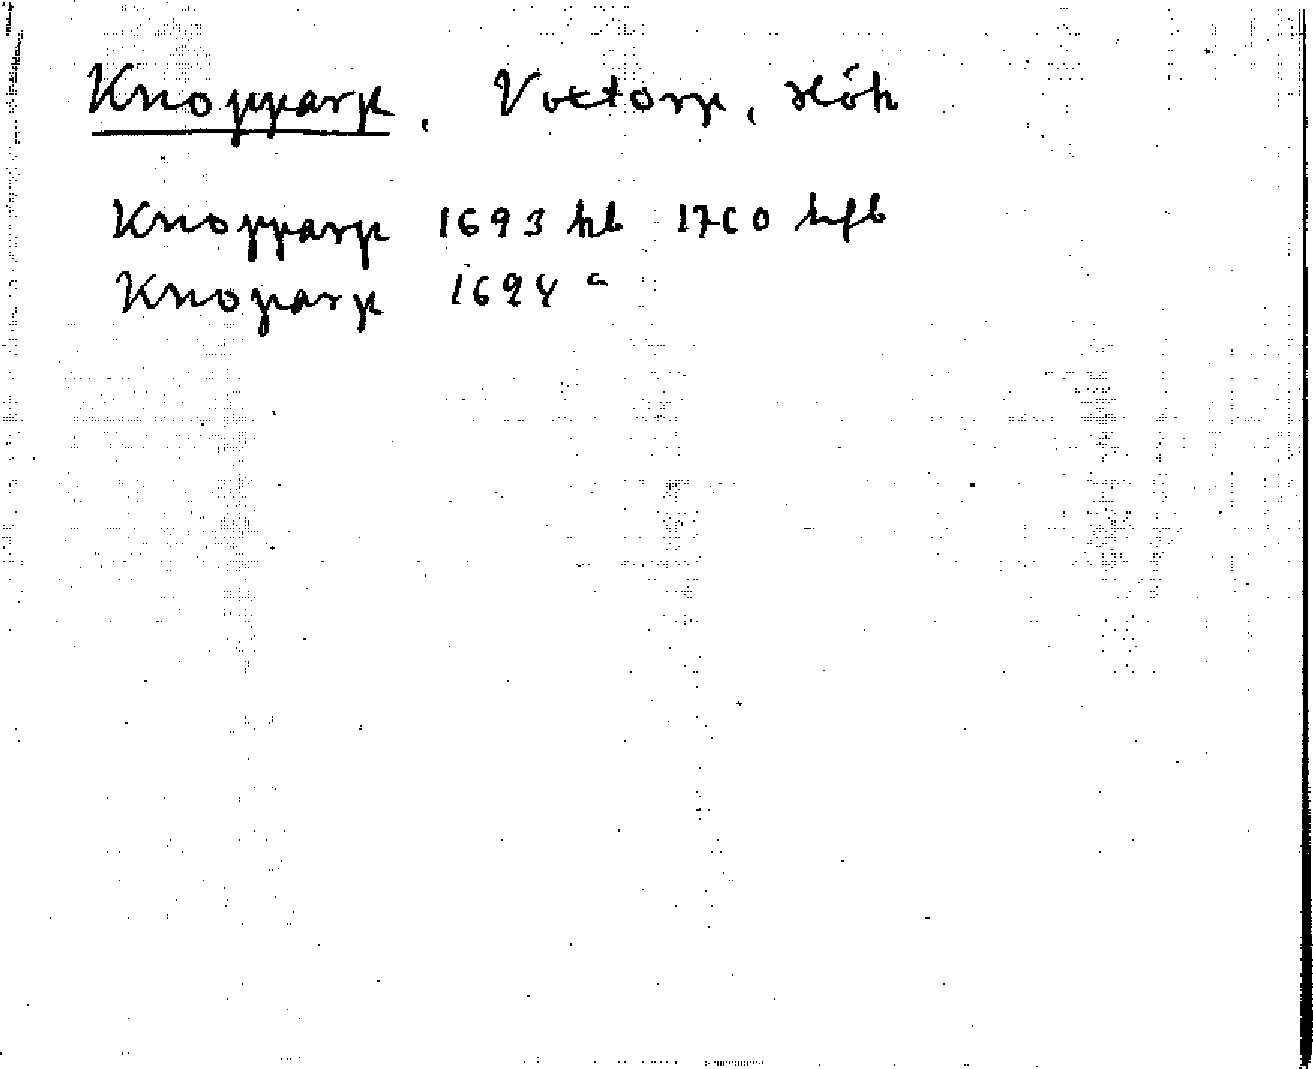 Knopparp, Voxtorp, sHöh
Knopparp 1693 hb 1760 hfb
Knoparp 1694 "